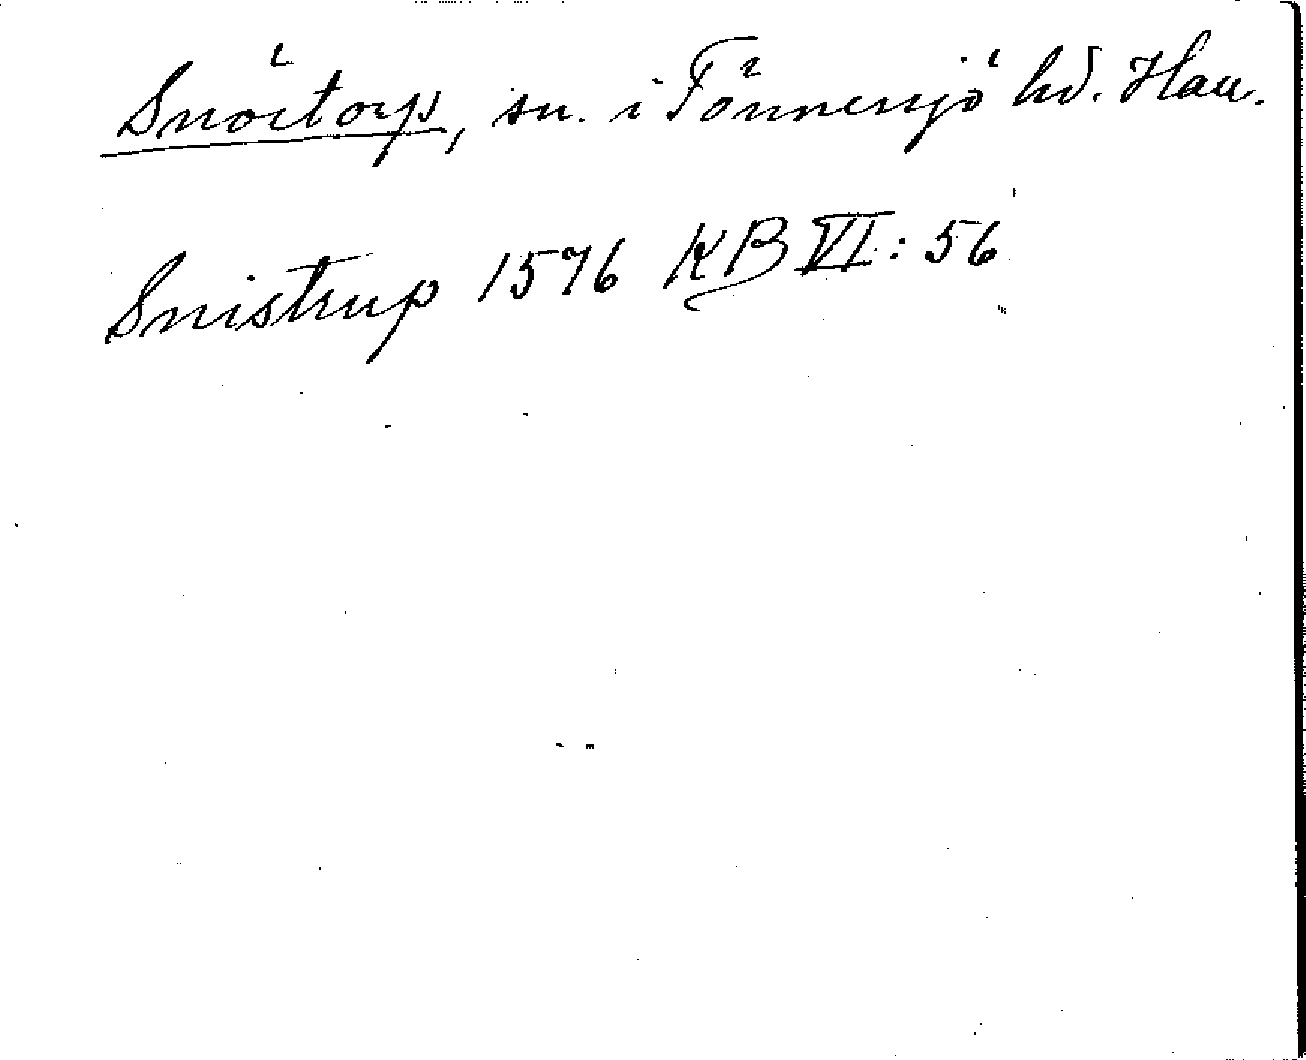 Snöstorp, sn. i Tönnersjö hd. Hall.
Snistrup 1576 KB VI: 56